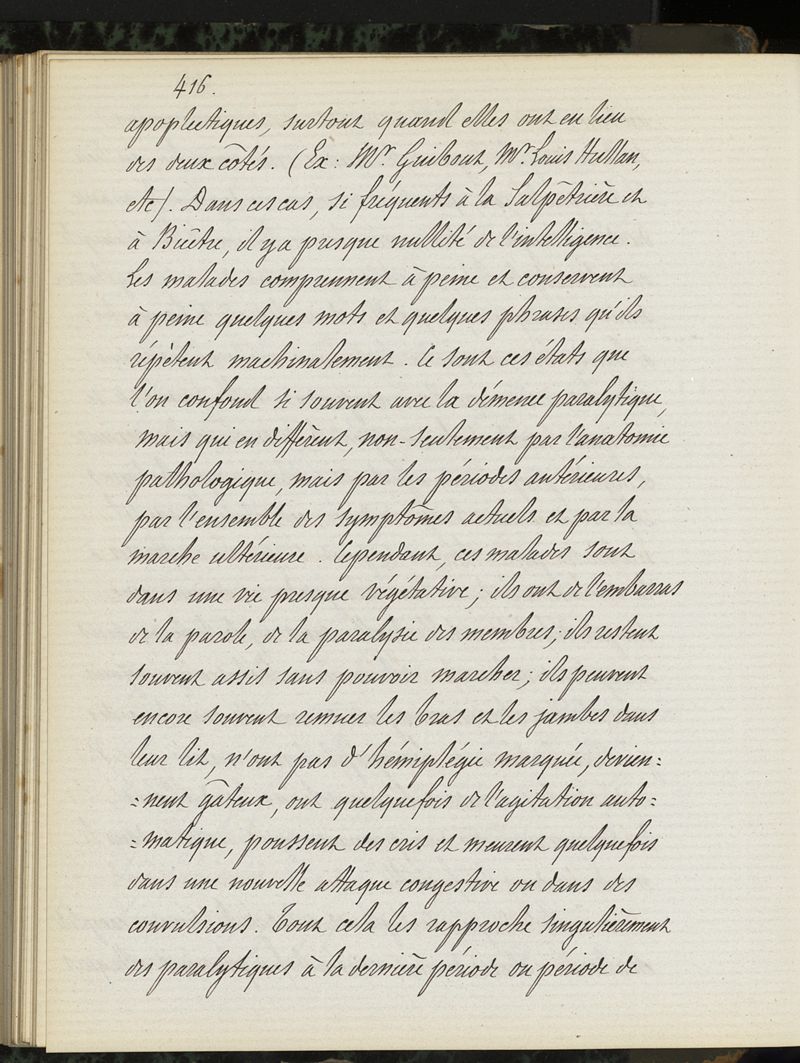 416.
apoplectiques, surtout quand elles ont eu lieu
des deux côtés. (Ex: Mr. Guibout, Mr. Louis
etc). Dans ces cas, si fréquents à la Salpêtrière et
à Bicêtre, il y a presque nullité de l'intelligence.
Les malades comprennent à peine et conservent
à peine quelques mots et quelques phrases qu'ils
répètent machinalement. Ce sont ces états que
l'on confond si souvent avec la démence paralytique,
mais qui en diffèrent, non-seulement par l'anatomie
pathologique, mais par les périodes antérieures,
par l'ensemble des symptômes actuels et par la
marche ultérieure. Cependant, ces malades sont
dans une vie presque végétative; ils ont de l'embarras
de la parole, de la paralysie des membres; ils restent
souvent assis sans pouvoir marcher; ils peuvent
encore souvent remuer les bras et les jambes dans
leur lit, n'ont pas d'hémiplégie marquée, devien=
=nent gâteux, ont quelquefois de l'agitation auto=
=matique, poussent des cris et meurent quelquefois
dans une nouvelle attaque congestive ou dans des
convulsions. Tout cela les rapproche singulièrement
des paralytiques à la dernière période ou période de